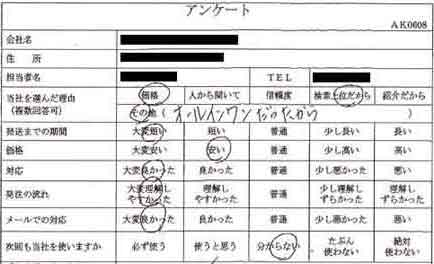 アンケート
AK0008
会社名
住 所
担当者名 TEL
当社を選んだ理由 (複数回答可) 価格 人から聞いて 信頼度 検索上位だから 紹介だから
その他 ( オールインワンだったから )
発送までの期間 大変短い 短い 普通 少し長い 長い
価格 大変安い 安い 普通 少し高い 高い
対応 大変良かった 良かった 普通 少し悪かった 悪い
発注の流れ 大変理解しやすかった 理解しやすかった 普通 少し理解しずらかった 理解しずらかった
メールでの対応 大変良かった 良かった 普通 少し悪かった 悪い
次回も当社を使いますか 必ず使う 使うと思う 分からない たぶん使わない 絶対使わない